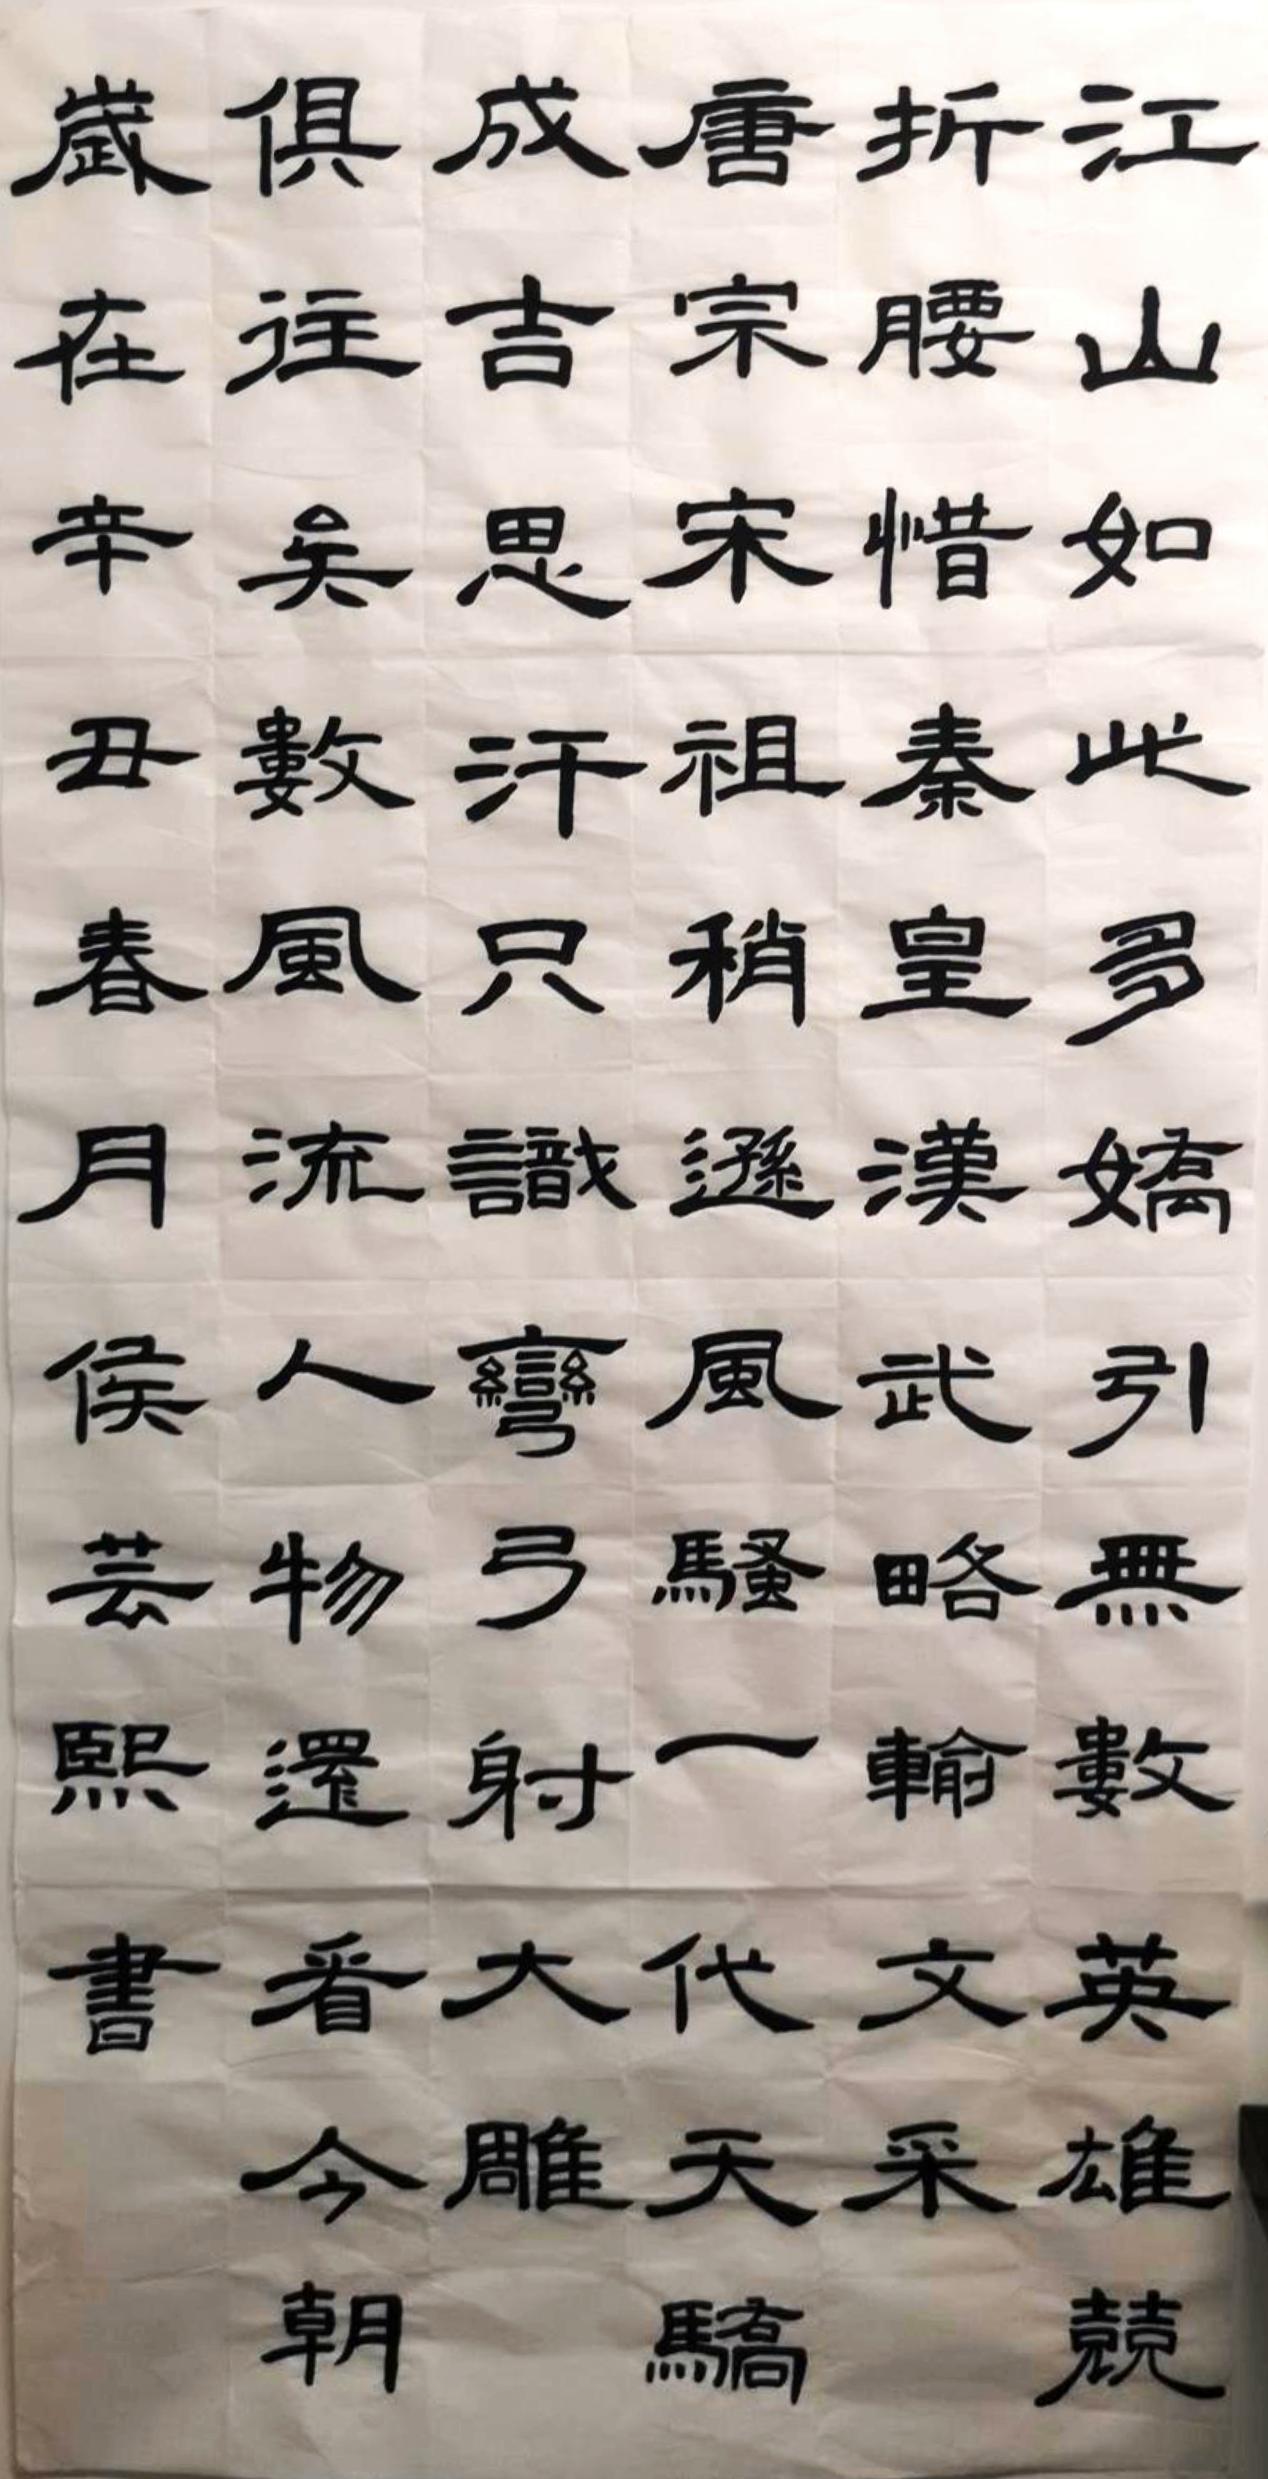 江山如此多嬌引無數英雄競
折腰惜秦皇漢武略輸文采
唐宗宋祖稍遜風騷一代天驕
成吉思汗只識彎弓射大雕
俱往矣數風流人物還看今朝
歲在辛丑春月侯芸熙書